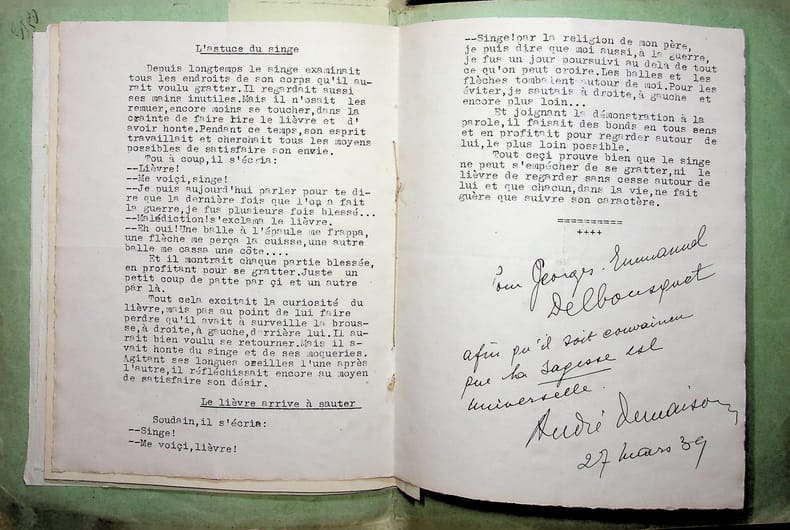 L'astuce du singe
Depuis longtemps le singe examinait
tous les endroits de son corps qu'il au-
rait voulu gratter.Il regardait aussi
ses mains inutiles.Mais il n'osait les
remuer,encore moins se toucher,dans la
crainte de faire rire le lièvre et d'
avoir honte.Pendant ce temps,son esprit
travaillait et cherchait tous les moyens
possibles de satisfaire son envie.
Tou à coup,il s'écria:
--Lièvre!
--Me voiçi,singe!
--Je puis aujourd'hui parler pour te di-
re que la dernière fois que l'on a fait
la guerre,je fus plusieurs fois blessé...
--Malédiction!s'exclama le lièvre.
--Eh oui!Une balle à l'épaule me frappa,
une flèche me perça la cuisse,une autre
balle me cassa une côte....
Et il montrait chaque partie blessée,
en profitant pour se gratter.Juste un
petit coup de patte par çi et un autre
par là.
Tout cela excitait la curiosité du
lièvre,mais pas au point de lui faire
perdre qu'il avait à surveille la brous-
se,à droite,à gauche,derrière lui.Il au-
rait bien voulu se retourner.Mais il a-
vait honte du singe et de ses moqueries.
Agitant ses longues oreilles l'une après
l'autre,il réfléchissait encore au moyen
de satisfaire son désir.
Le lièvre arrive à sauter
Soudain,il s'écria:
--Singe!
--Me voiçi,lièvre!
--Singe!par la religion de mon père,
je puis dire que moi aussi,à la guerre,
je fus un jour poursuivi au delà de tout
ce qu'on peut croire.Les balles et les
flèches tombaient autour de moi.Pour les
éviter,je sautais à droite,à gauche et
encore plus loin...
Et joignant la démonstration à la
parole,il faisait des bonds en tous sens
et en profitait pour regarder autour de
lui,le plus loin possible.
Tout ceçi prouve bien que le singe
ne peut s'empécher de se gratter,ni le
lièvre de regarder sans cesse autour de
lui et que chacun,dans la vie,ne fait
guère que suivre son caractère.
==========
++++
Pour Georges-Emmanuel
Delbousquet
afin qu'il soit convaincu
que la sagesse est
universelle.
André Demaison
27 mars 39